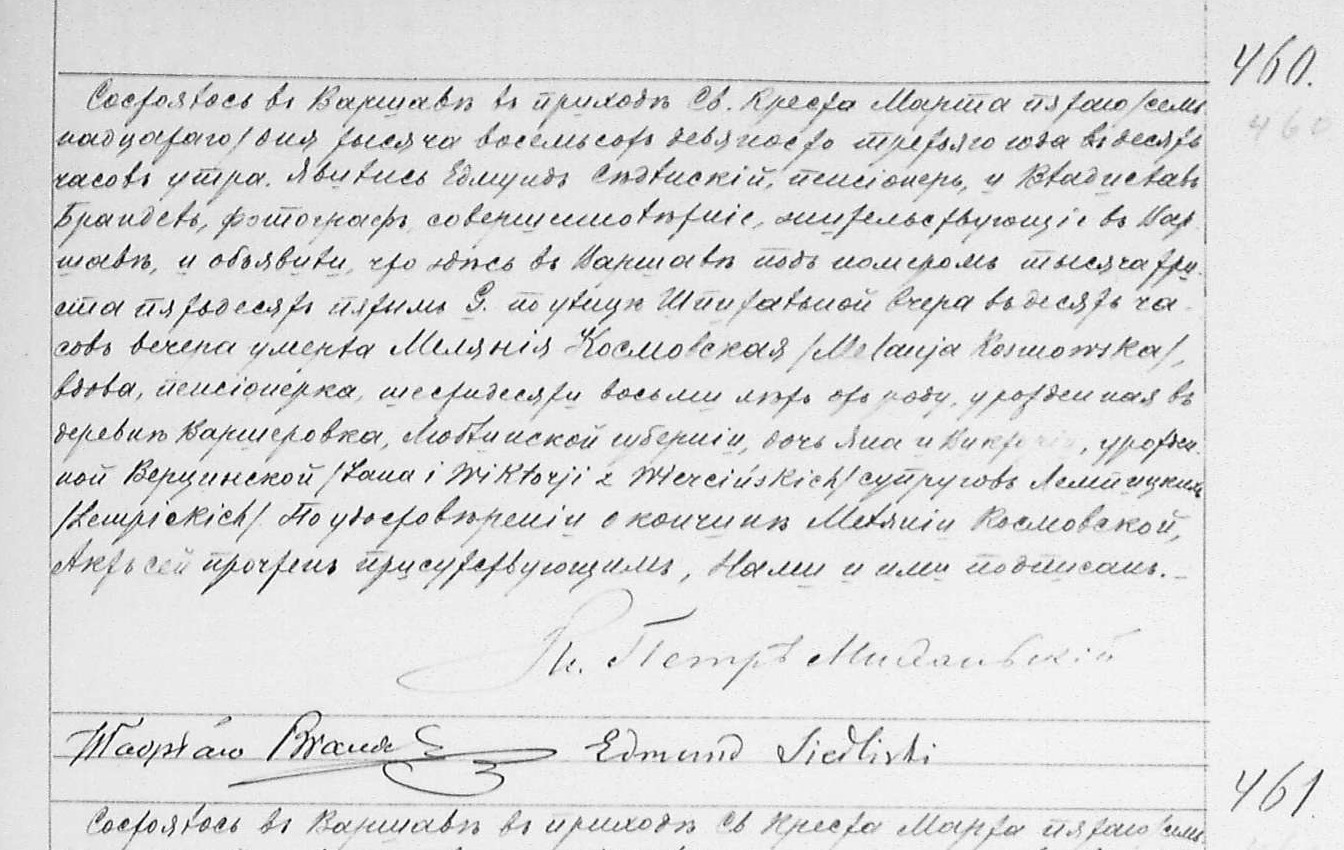 460.
460
Состоялось въ Варшавѣ въ приходѣ Св. Креста Марта пятаго /семь
надцатаго/ дня тысяча восемьсотъ девяносто третьяго года въ десять
часовъ утра. Явились Едмундъ Сѣдлискій, пенсіонеръ, и Владиславъ
Брандель, фотографъ, совершеннолѣтніе, жительствующіе въ Вар-
шавѣ, и объявили, что здѣсь въ Варшавѣ подъ номеромъ тысяча три-
ста пятьдесятъ пятымъ G. по улицѣ Шпитальной вчера въ десять ча-
совъ вечера умерла Мелянія Космовская /Melanja Kosmowska/,
вдова, пенсіонерка, шестидесяти восьми лѣтъ отъ роду, урожденная въ
деревнѣ Варшеровка, Люблинской губерніи, дочь Яна и Викторіи, урожден-
ной Верцинской /Jana i Wiktorji z Wiercińskich/ супруговъ Лемпицкихъ
/Lempickich/. По удостовѣреніи о кончинѣ Меляніи Космовской,
Актъ сей прочтенъ присутствующимъ, Нами и ими подписанъ.
Кс. Петръ
Edmund Siedliski
461.
Состоялось въ Варшавѣ въ приходѣ Св Креста Марта пятаго /семь-